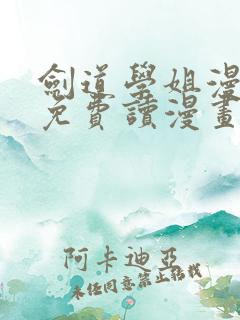 劍道學姐漫
免費讀漫畫
阿卡迪亞
未經同意禁止轉載